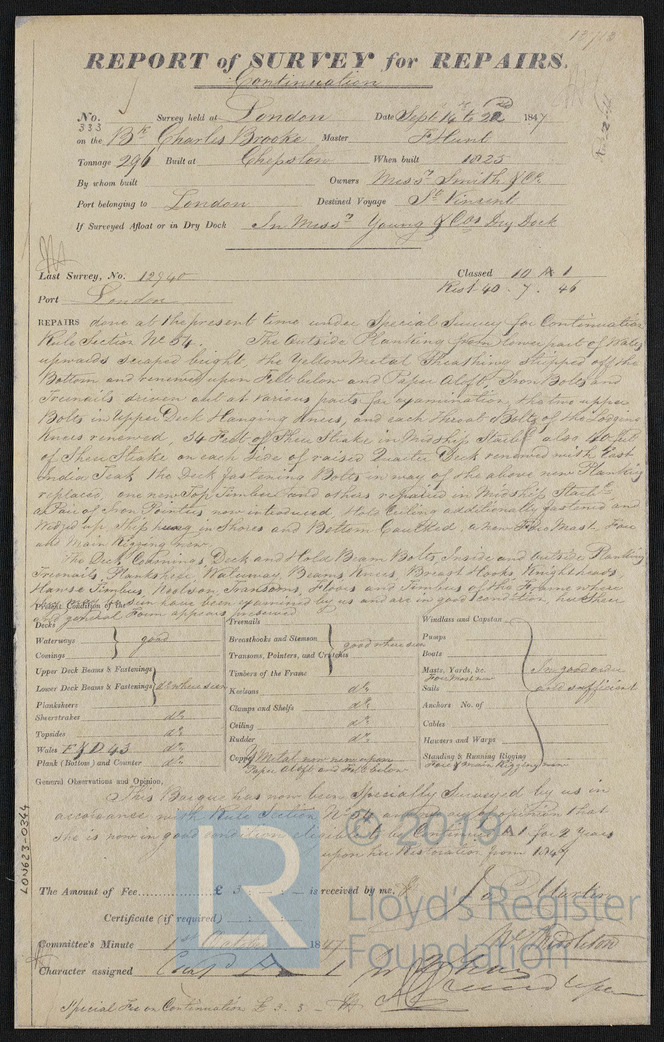 REPORT of SURVEY for REPAIRS.
Continuation
No. 333 Survey held at London Date Sept 14 to 22 1847
on the Bk Charles Brooke Master F Hunt
Tonnage 296 Built at Chepstow When built 1825
By whom built Owners Messrs Smith & Co
Port belonging to London Destined Voyage St Vincent
If Surveyed Afloat or in Dry Dock In Messrs Young & Cos Dry Dock
Last Survey, No. 12940 Classed 10 A 1
Port London Rest 40. 7. 46
REPAIRS done at the present time under Special Survey for Continuation
Rule Section No 54. The Outside Planking from lower part of Wales
upwards scraped bright, the Yellow Metal Sheathing stripped off the
Bottom and renewed upon Felt below and Paper aloft, Iron Bolts and
Treenails driven out at various parts for examination, the two upper
Bolts in Upper Deck Hanging Knees, and each Throat Bolts of the Lodging
Knees renewed, 34 Feet of Sheer Strake in Midship Starbd also 40 feet
of Sheer Strake on each side of raised Quarter Deck renewed with East
India Teak the Deck fastening Bolts in way of the above new Planking
replaced, one new Top Timber and others repaired in Midship Starbd
a Pair of Iron Pointers now introduced Hold Ceiling additionally fastened and
wedged up Ship hung in Shores and Bottom Caulked, a new Fore Mast, Fore
and Main Rigging new.
The Deck, Comings, Deck and Hold Beam Bolts, Inside and Outside Planking
Treenails, Plankshere, Waterway, Beams, Knees, Breast Hooks, Knightheads,
Hawse Timbers, Keelson, Transoms, Floors and Timbers of the Frame where
seen have been examined by us and are in good condition, her Sheer
and general Form appears preserved
Present Condition of the
Decks
Waterways good
Comings
Upper Deck Beams & Fastenings
Lower Deck Beams & Fastenings do where seen
Plankshears
Sheerstrakes do
Topsides do
Wales E & D 43 do
Plank (Bottom) and Counter do
Treenails
Breasthooks and Stemson good where seen
Transoms, Pointers, and Crutches
Timbers of the Frame
Keelsons do
Clamps and Shelfs do
Ceiling do
Rudder do
Copper Y Metal now new upon
Paper aloft and Felt below
Windlass and Capstan
Pumps
Boats
Masts, Yards, &c. In good order
Fore Mast new
Sails and sufficient
Anchors No. of
Cables
Hawsers and Warps
Standing & Running Rigging
Fore & Main Rigging new
General Observations and Opinion,
This Barque has now been Specially Surveyed by us in
accordance with Rule Section No 54, and in our opinion that
she is now in good condition eligible to be Continued A 1 for 2 Years
upon her Restoration from 1847
The Amount of Fee £ 3 : - : - is received by me,
J Martin
Certificate (if required)
Committee's Minute 1st October 1847
Character assigned Contd A 1
Special Fee on Continuation £ 3. 3 -
LON623-0344
LR
© 2019
Lloyd's Register
Foundation